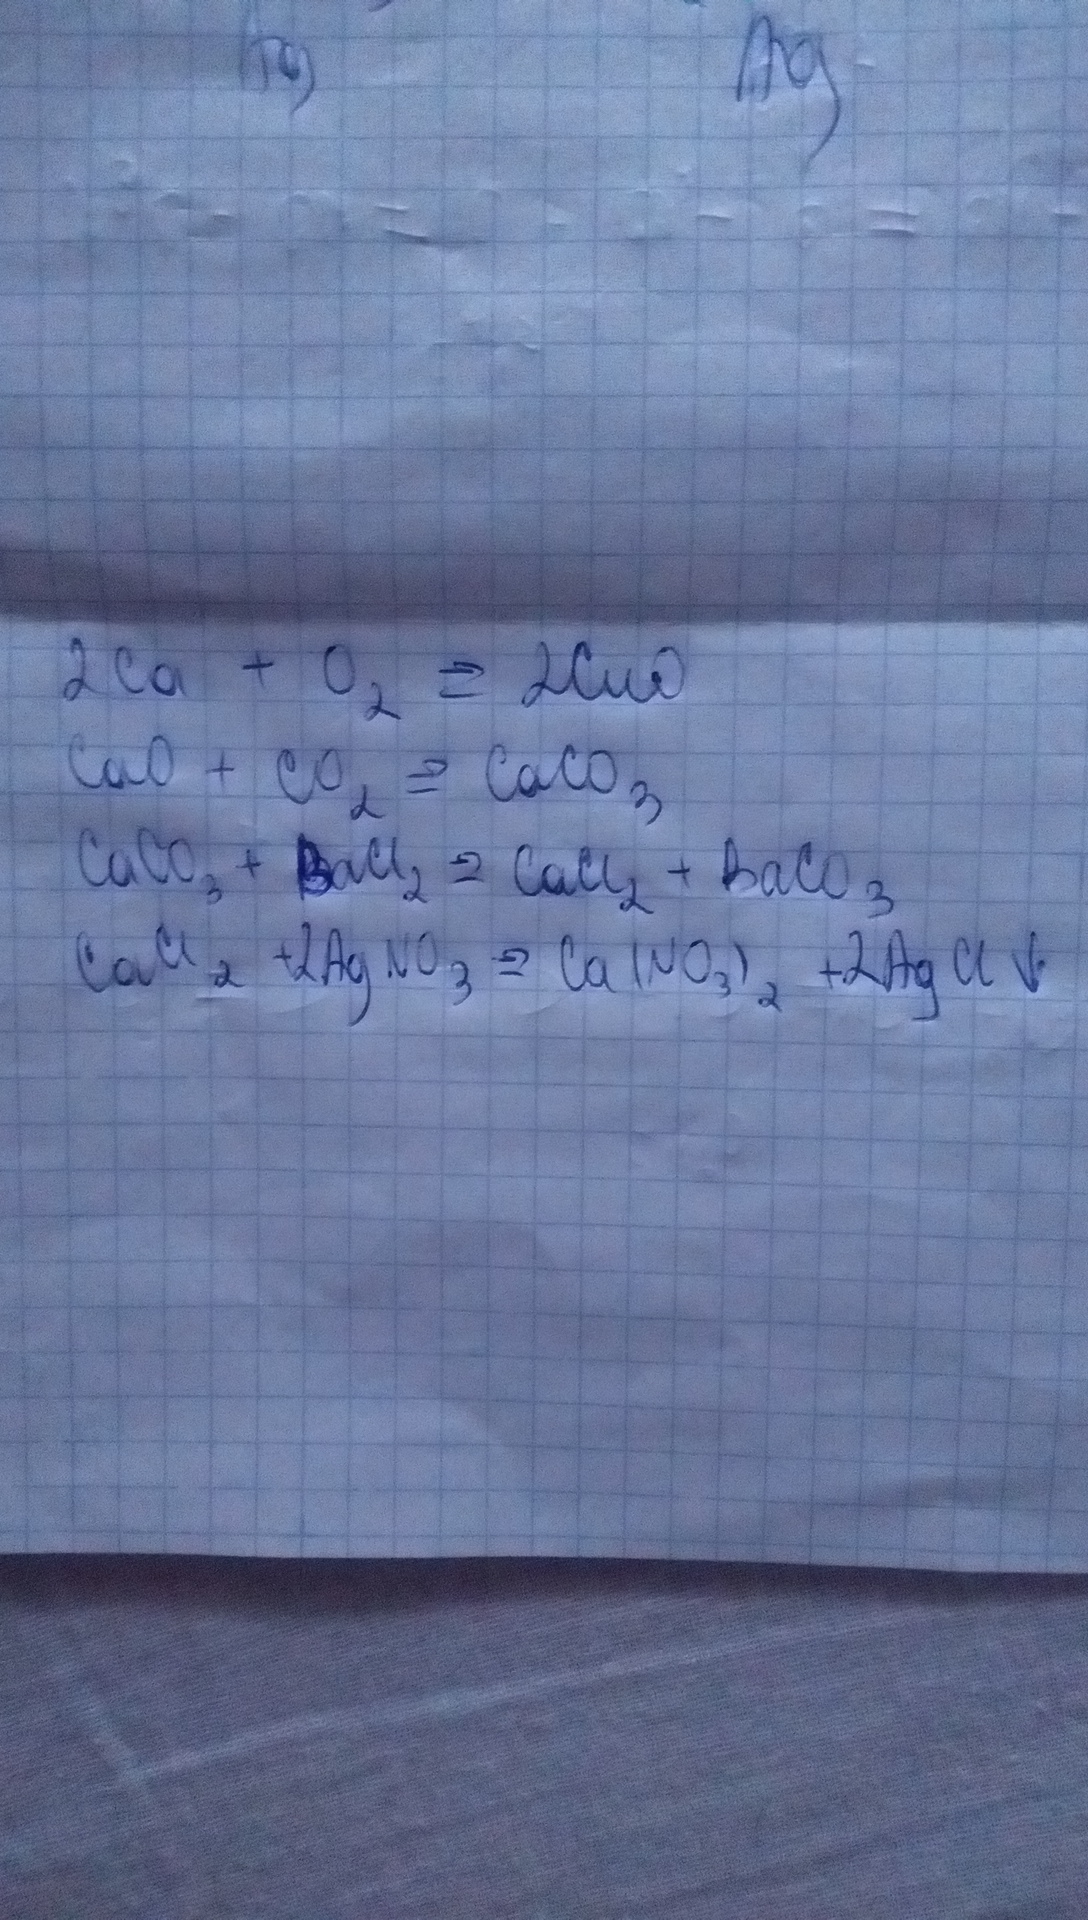 Ag
2Ca + O₂ = 2CuO
CaO + CO₂ = CaCO₃
CaCO₃ + BaCl₂ = CaCl₂ + BaCO₃
CaCl₂ +2AgNO₃ = Ca(NO₃)₂ +2AgCl ↓